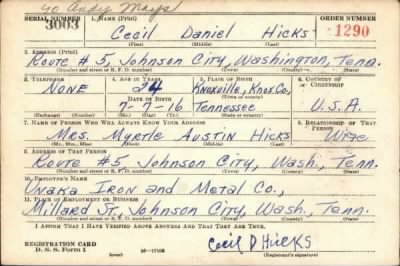 ℅ Andy Mays
SERIAL NUMBER 1. NAME (Print) ORDER NUMBER
3003 Cecil Daniel Hicks 1290
(First) (Middle) (Last)
2. ADDRESS (Print)
Route #5, Johnson City, Washington, Tenn.
(Number and street or R. F. D. number) (Town) (County) (State)
3. TELEPHONE 4. AGE IN YEARS 5. PLACE OF BIRTH 6. COUNTRY OF CITIZENSHIP
None 24 Knoxville, Knox Co.,
DATE OF BIRTH (Town or county)
7-7-16 Tennessee U.S.A.
(Exchange) (Number) (Mo.) (Day) (Yr.) (State or country)
7. NAME OF PERSON WHO WILL ALWAYS KNOW YOUR ADDRESS 8. RELATIONSHIP OF THAT PERSON
Mrs. Myrtle Austin Hicks Wife
(Mr., Mrs., Miss) (First) (Middle) (Last)
9. ADDRESS OF THAT PERSON
Route #5 Johnson City, Wash., Tenn.
(Number and street or R. F. D. number) (Town) (County) (State)
10. EMPLOYER'S NAME
Unaka Iron and Metal Co.,
11. PLACE OF EMPLOYMENT OR BUSINESS
Millard St, Johnson City, Wash., Tenn.
(Number and street or R. F. D. number) (Town) (County) (State)
I AFFIRM THAT I HAVE VERIFIED ABOVE ANSWERS AND THAT THEY ARE TRUE.
REGISTRATION CARD
D. S. S. Form 1 (over) 16-17105 Cecil D Hicks
(Registrant's signature)